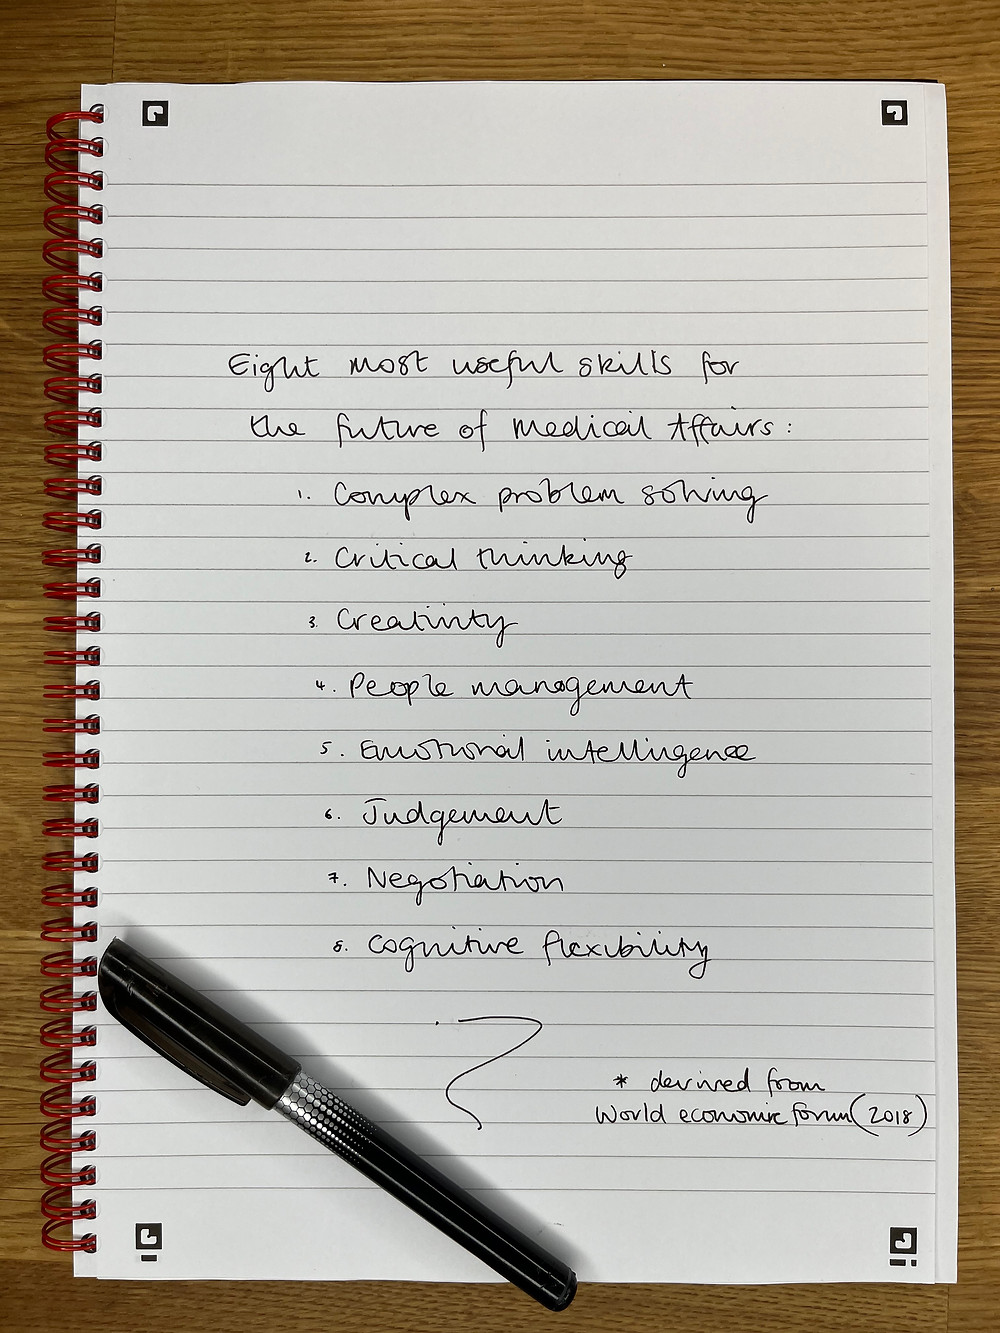 Eight most useful skills for
the future of Medical Affairs:
1. Complex problem solving
2. Critical thinking
3. Creativity
4. People management
5. Emotional intelligence
6. Judgement
7. Negotiation
8. Cognitive flexibility
* derived from
World economic forum (2018)